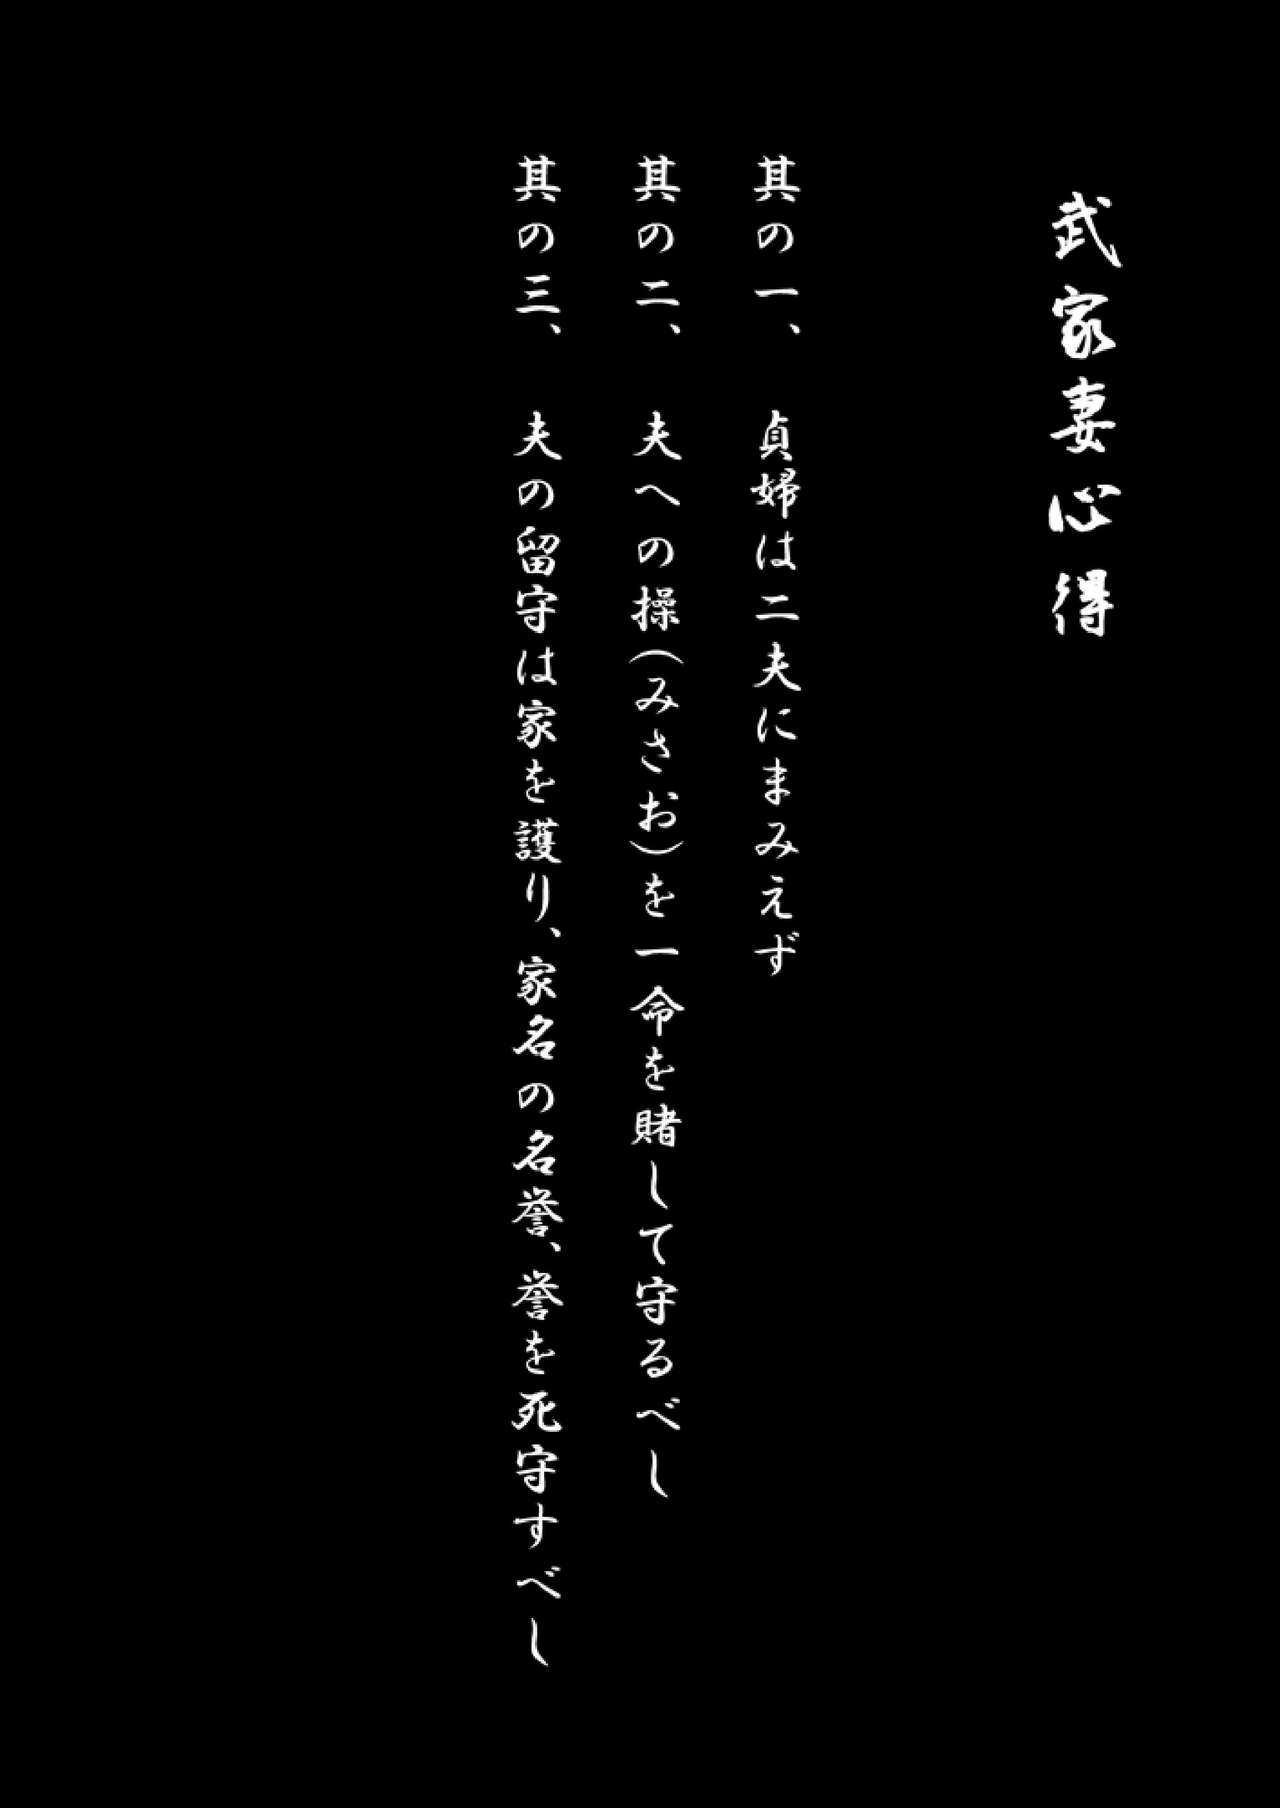 武家妻心得
其の一、　貞婦は二夫にまみえず
其の二、　夫への操(みさお)を一命を賭して守るべし
其の三、　夫の留守は家を護り、家名の名誉、誉を死守すべし